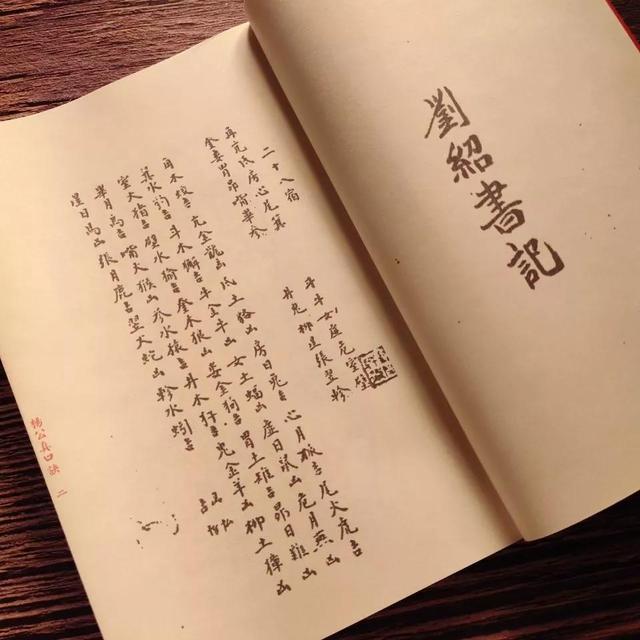 劉紹書記
二十八宿
角亢氐房心尾箕 斗牛女虛危室壁
奎婁胃昴嘴畢參 井鬼柳星張翌軫
角木蛟吉 亢金龍凶 氐土貉凶 房日兔吉 心月狐吉 尾火虎吉
箕水豹吉 斗木獬吉 牛金牛凶 女土蝠凶 虛日鼠凶 危月燕凶
室火猪吉 壁水㺄吉 奎木狼凶 婁金狗吉 胃土雉吉 昴日雞凶
畢月烏吉 嘴火猴凶 參水猿吉 井木犴吉 鬼金羊凶 柳土獐凶
星日馬凶 張月鹿吉 翌火蛇凶 軫水蚓吉
楊公真口訣 二